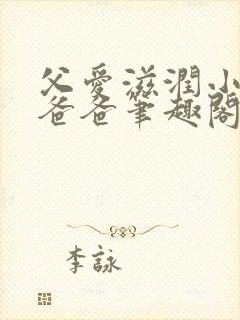 父愛滋潤小
爸爸筆趣閣
李詠